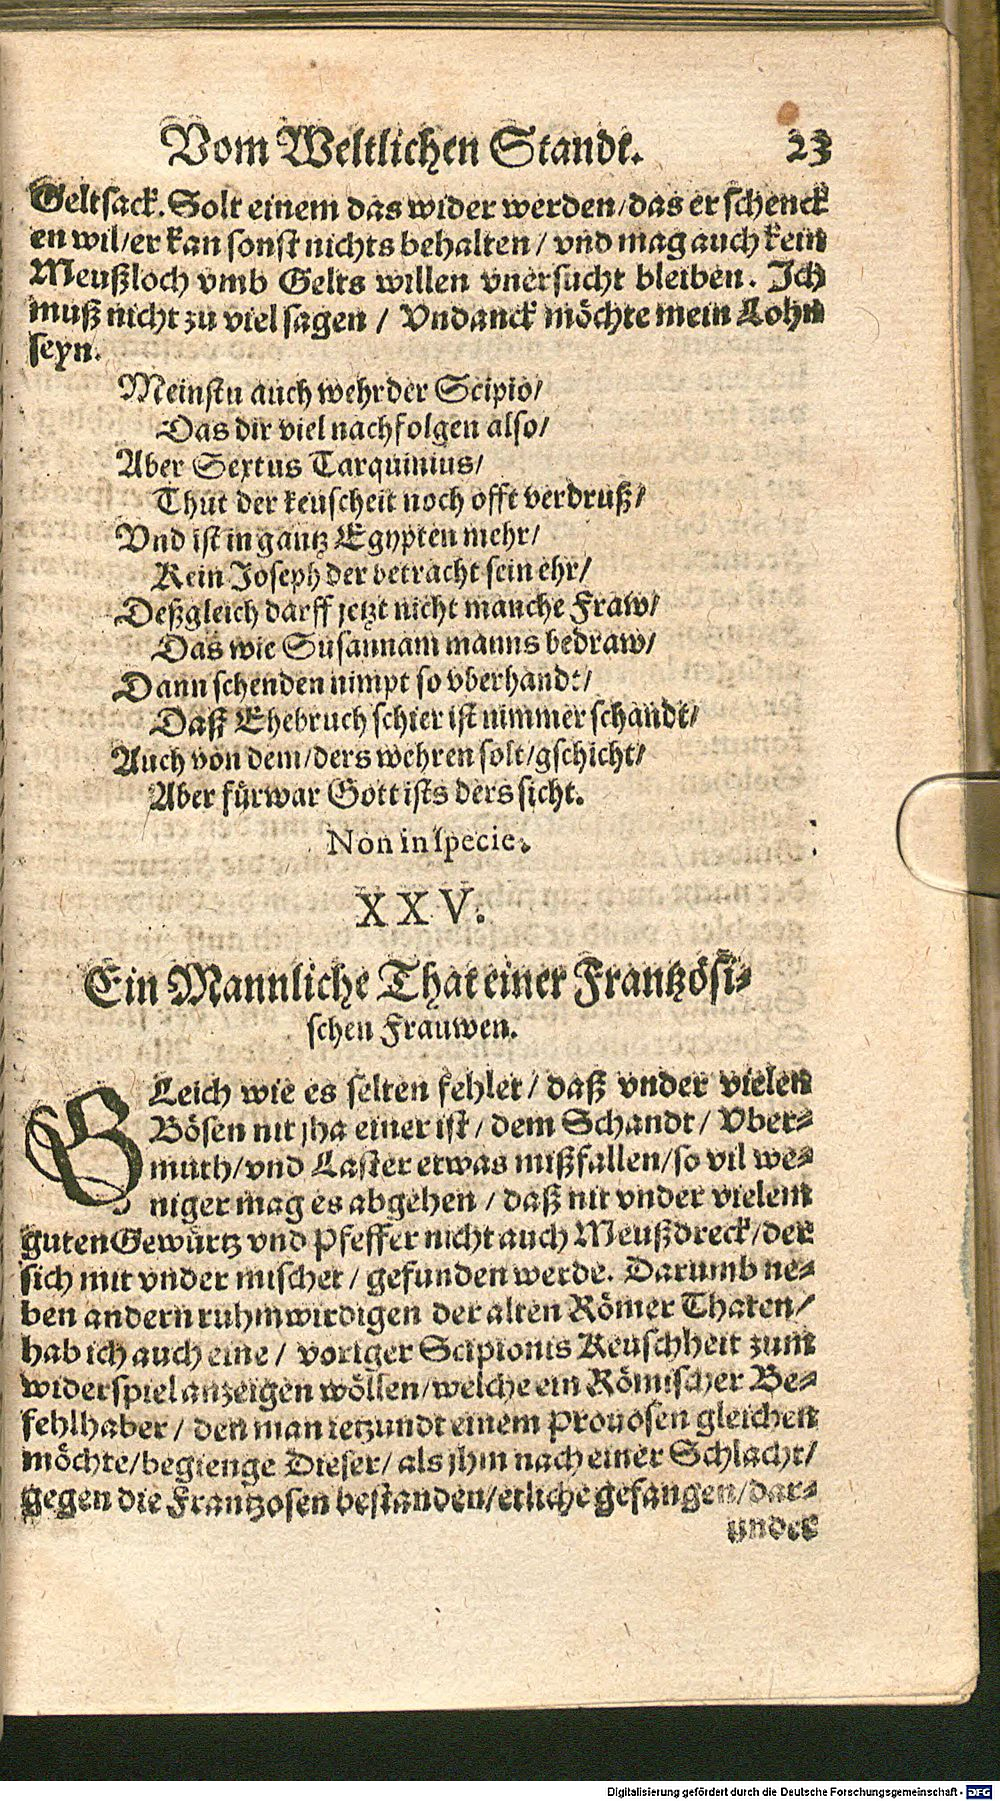 Vom Weltlichen Standt. 23
Geltsack. Solt einem das wider werden/das er schenck
en wil/er kan sonst nichts behalten/ vnd mag auch kein
Meußloch vmb Gelts willen vnersucht bleiben. Ich
muß nicht zu viel sagen / Vndanck möchte mein Lohn
seyn.
Meinstu auch wehr der Scipio/
Das dir viel nachfolgen also/
Aber Sextus Tarquinius/
Thut der keuscheit noch offt verdruß/
Vnd ist in gantz Egypten mehr/
Kein Joseph der betracht sein ehr/
Deßgleich darff jetzt nicht manche Fraw/
Das wie Susannam manns bedraw/
Dann schenden nimpt so vberhandt/
Dast Ehebruch schier ist nimmer schandt/
Auch von dem/ders wehren solt/gschicht/
Aber fürwar Gott ists ders sicht.
Non in specie.
XXV.
Ein Mannliche That einer Frantzösi-
schen Frauwen.
GLeich wie es selten fehlet/ daß vnder vielen
Bösen nit jha einer ist/ dem Schandt/ Vber-
muth/vnd Laster etwas mißfallen/so vil we-
niger mag es abgehen / daß nit vnder vielem
guten Gewürtz vnd Pfeffer nicht auch Meußdreck/der
sich mit vnder mischet/ gefunden werde. Darumb ne-
ben andern ruhmwirdigen der alten Römer Thaten/
hab ich auch eine/ voriger Scipionis Keuschheit zum
widerspiel anzeigen wöllen/welche ein Römischer Be-
fehlhaber/ den man ietzundt einem Prouosen gleichen
möchte/begienge Dieser/ als jhm nach einer Schlacht/
gegen die Frantzosen bestanden/etliche gefangen/dar-
under
Digitalisierung gefördert durch die Deutsche Forschungsgemeinschaft - DFG